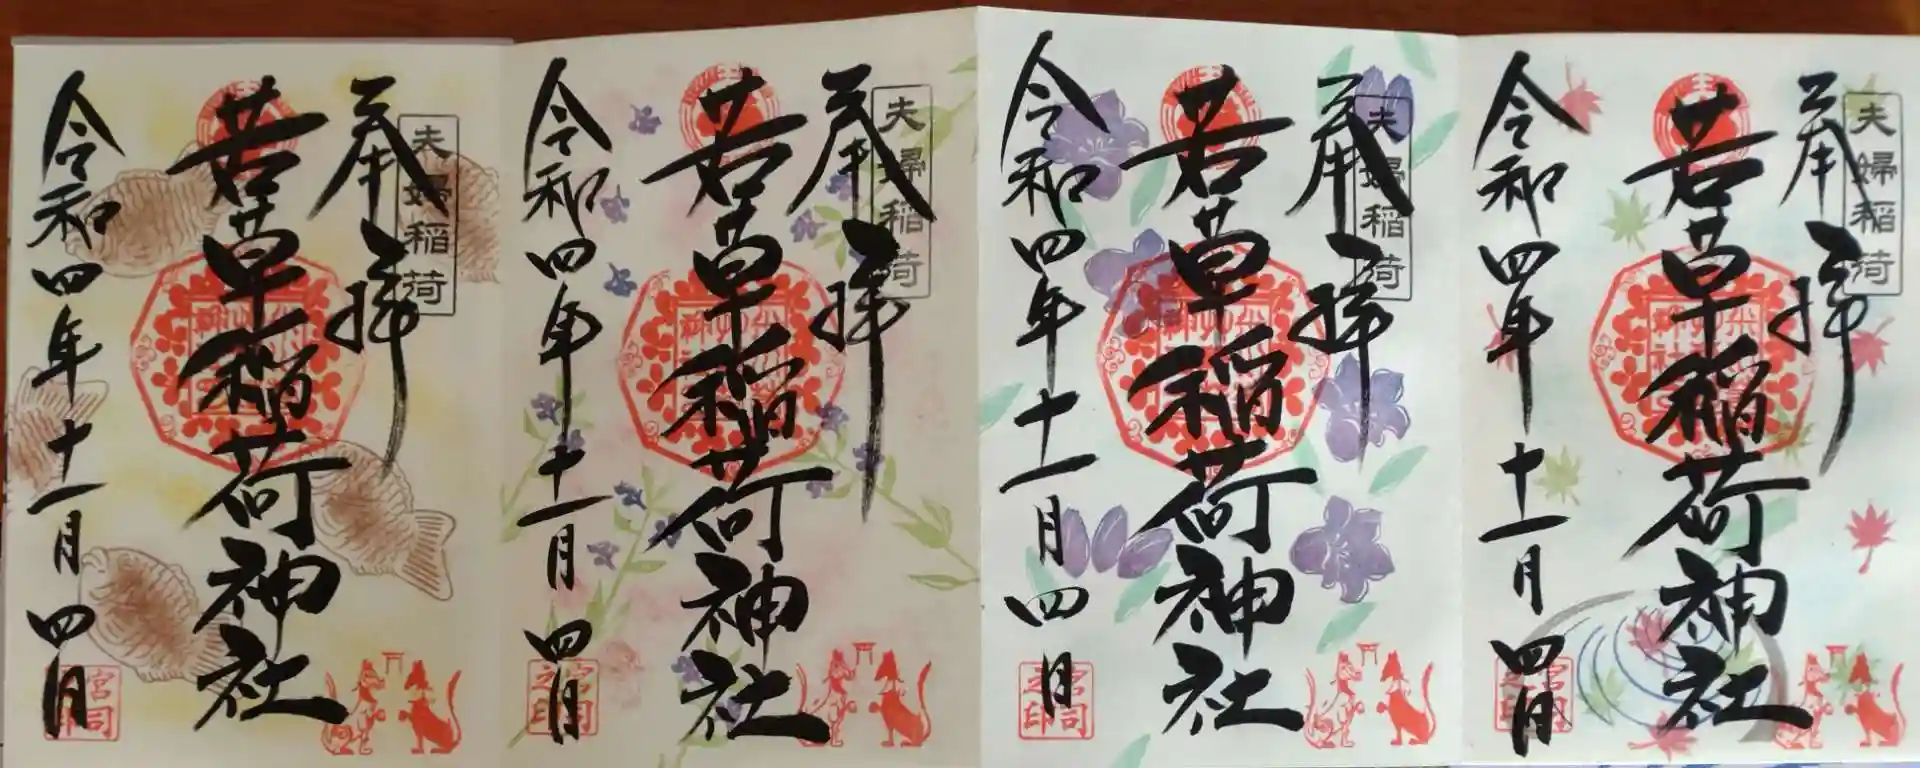 夫婦稲荷
奉拝
若草稲荷神社
令和四年十一月四日
宮司之印
夫婦稲荷
奉拝
若草稲荷神社
令和四年十一月四日
宮司之印
夫婦稲荷
奉拝
若草稲荷神社
令和四年十一月四日
宮司之印
夫婦稲荷
奉拝
若草稲荷神社
令和四年十一月四日
宮司之印